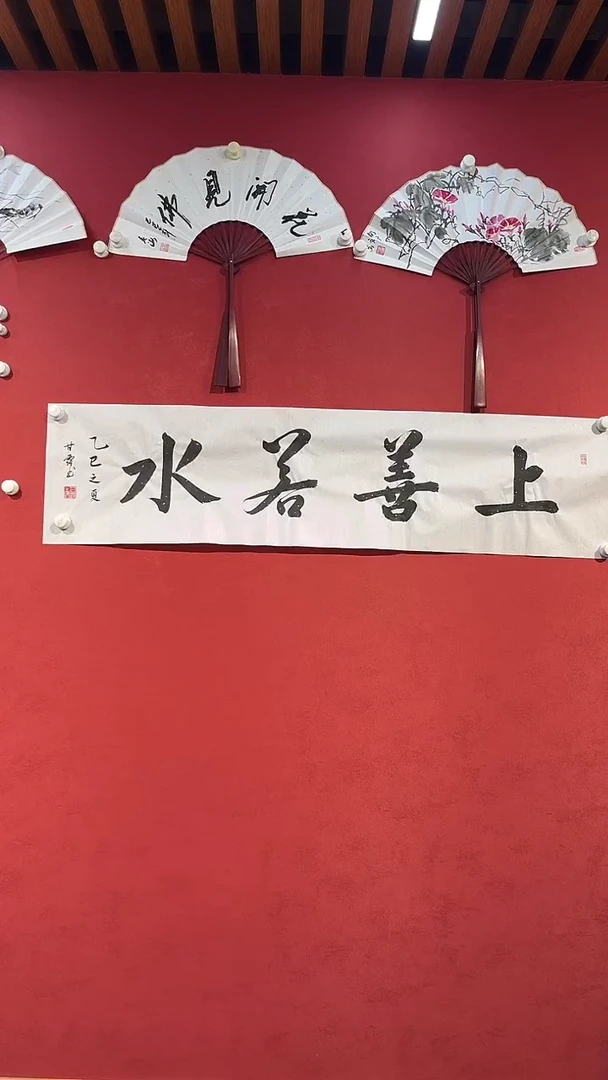 花開見佛
上善若水
乙巳之夏